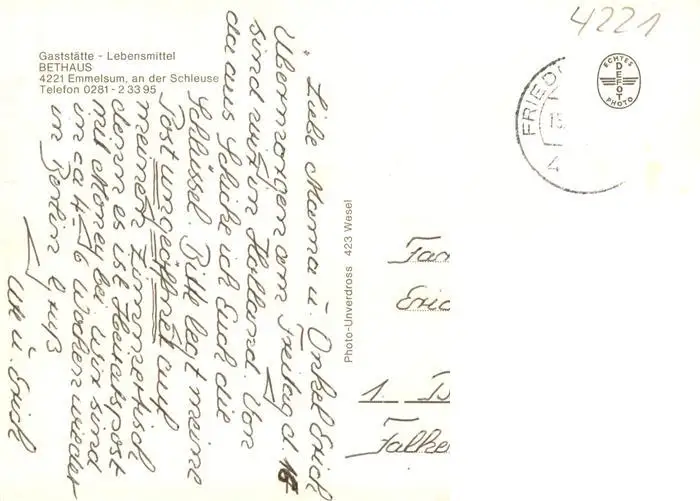 Gaststätte - Lebensmittel
BETHAUS
4221 Emmelsum, an der Schleuse
Telefon 0281 - 2 33 95
Liebe Mama u. Onkel Erich
Übermorgen am Freitag d. 15
sind wir in Holland. Von
da aus schicke ich Euch die
Schlüssel. Bitte legt meine
Post ungeöffnet auf
meinen Zimmertisch
denn es ist Heiratspost
mit Money bei wir sind
in ca 4-6 Wochen wieder
in Berlin
u. Erich
Photo-Unverdross 423 Wesel
4221
FRIED
4
ECHTES
DEFOT
PHOTO
Fam
Eric
1. B
Falke